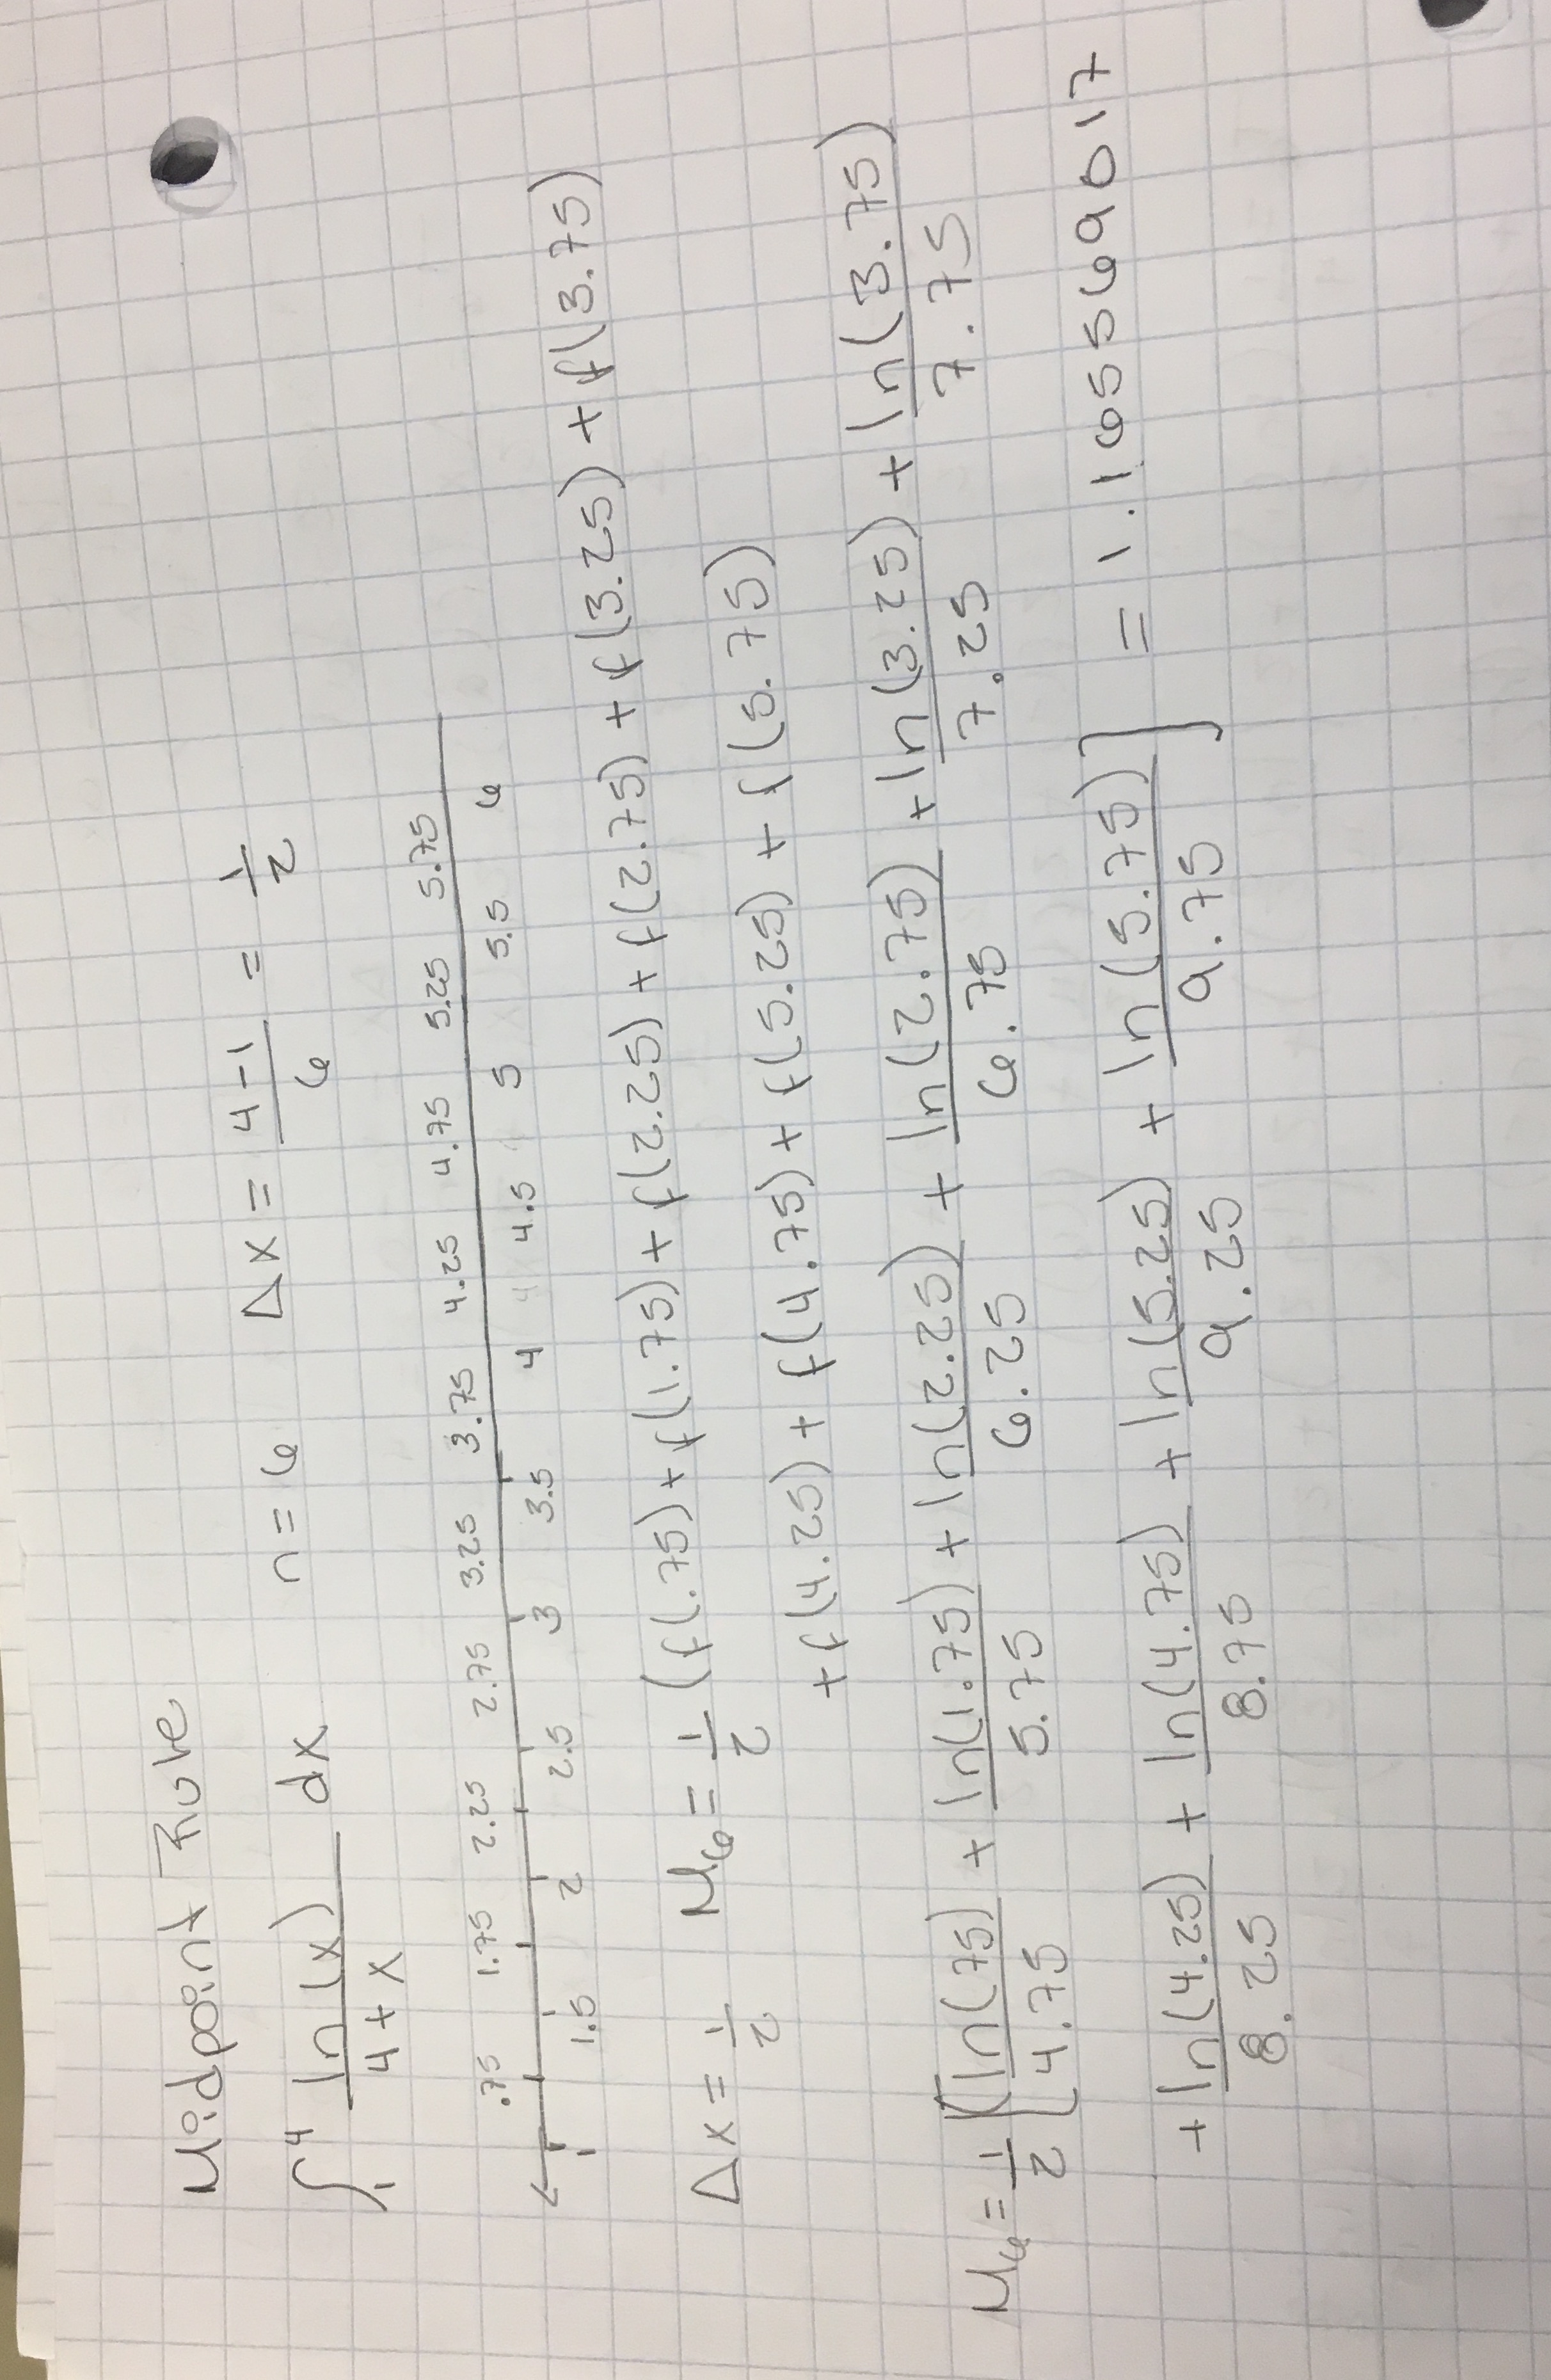 Midpoint Rule
∫₁⁴ ln(x)/(4+x) dx    n=6    Δx = (4-1)/6 = 1/2
.75 1.75 2.25 2.75 3.25 3.75 4.25 4.75 5.25 5.75
1 1.5 2 2.5 3 3.5 4 4 4.5 5 5.5 6
Δx = 1/2    M₆ = 1/2 (f(.75)+f(1.75)+f(2.25)+f(2.75)+f(3.25)+f(3.75)
+f(4.25)+f(4.75)+f(5.25)+f(5.75)
M₆ = 1/2 [ln(75)/4.75 + ln(1.75)/5.75 + ln(2.25)/6.25 + ln(2.75)/6.75 + ln(3.25)/7.25 + ln(3.75)/7.75
+ ln(4.25)/8.25 + ln(4.75)/8.75 + ln(5.25)/9.25 + ln(5.75)/9.75] = 1.165569017